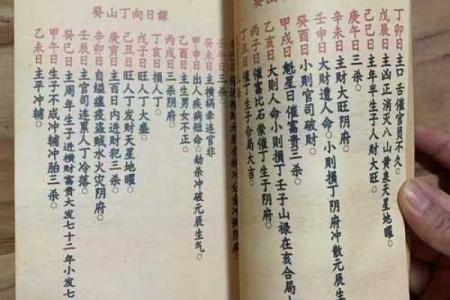 丁卯日主口舌催官員不久。
戊辰日主凶正消灭八山黄泉天星地曜。
己巳日主年半生子人财大旺。
庚午日三杀。
辛未日主财大旺阴府。
壬申日大财遭人命。小则损丁阴府冲散元辰生
癸酉日小则官司破财。
甲戌日魁星日催富贵三杀。
乙亥日大则人命小则損丁壬子山禄在亥合局
丙子日催富比石崇催丁生子阴府。
丁丑日催丁生子合局大吉。
癸山丁向日課
癸未日主横病牵连官非
甲申日出人疾病短命。劫杀冲破元辰生气。
乙酉日主生男女不正。
丙戌日三杀阴府。
丁亥日損人丁。
戊子日旺人丁大盛。
己丑日旺人丁发财天星地曜。
庚寅日主百日内进财犯三杀。
辛卯日自缢瘟疫盗贼水火灾阴府。
壬辰日主官司连累人丁冷落。
癸巳日主周年生子进横财富贵大发七十二年小发七
甲午日生子不成冲辅冲胎三杀。
乙未日主平冲辅。